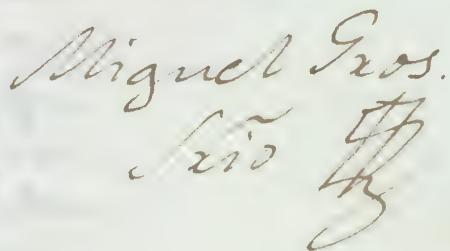 Miguel Gros.
Srĩo